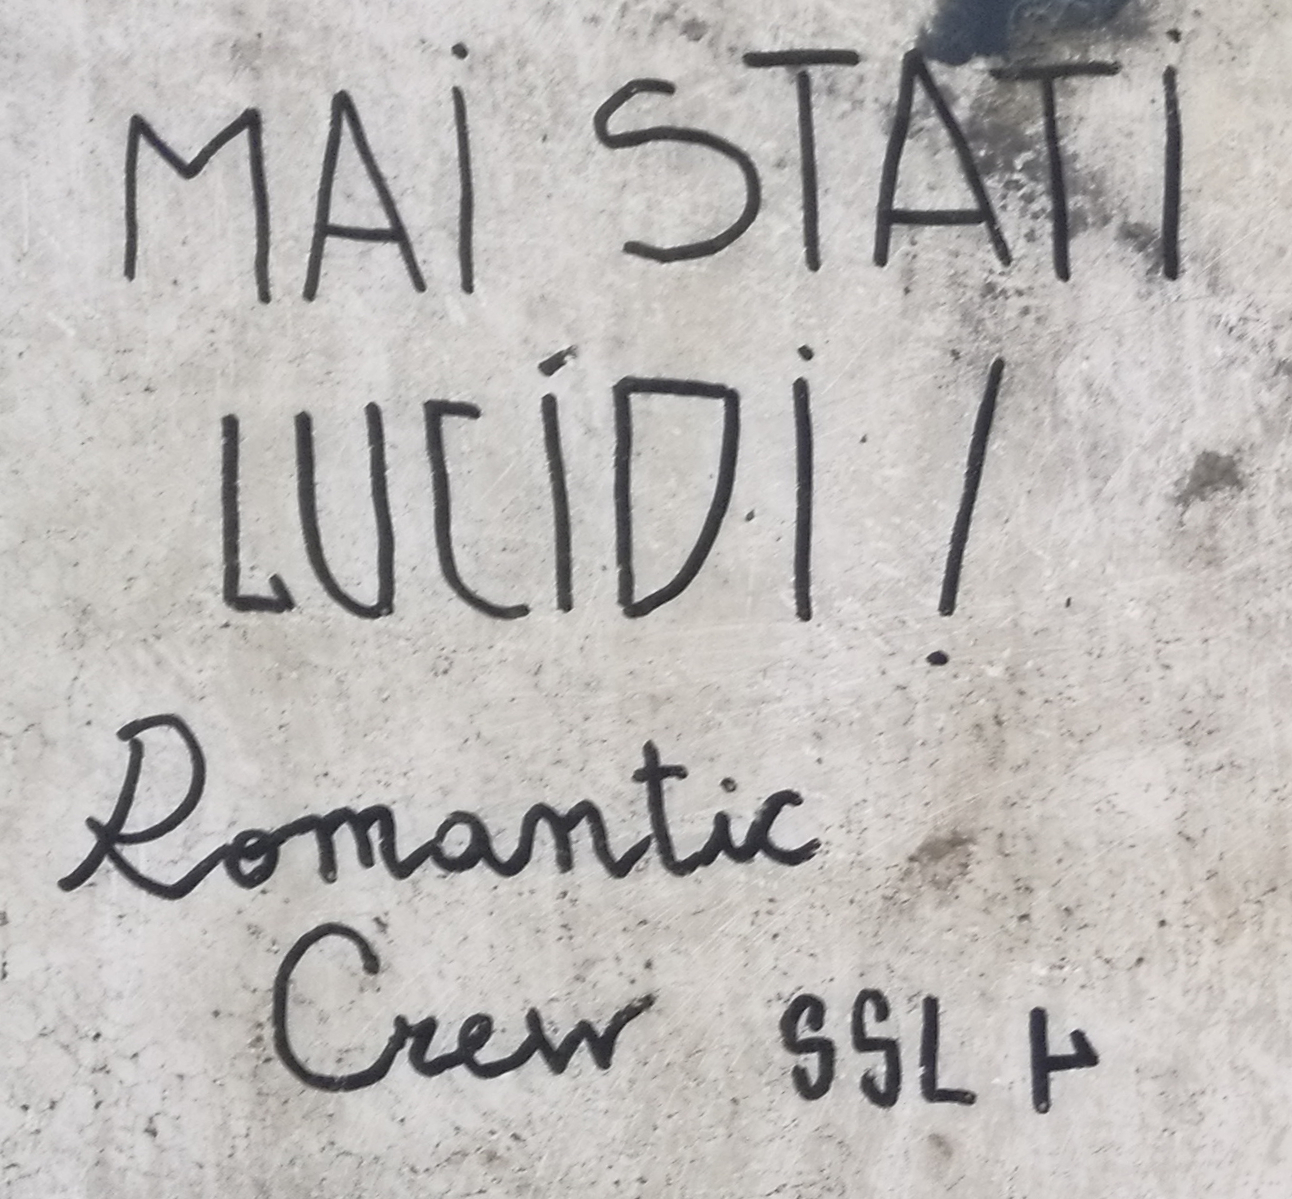 MAi STATi
LUCiDi!
Romantic
Crew SSL